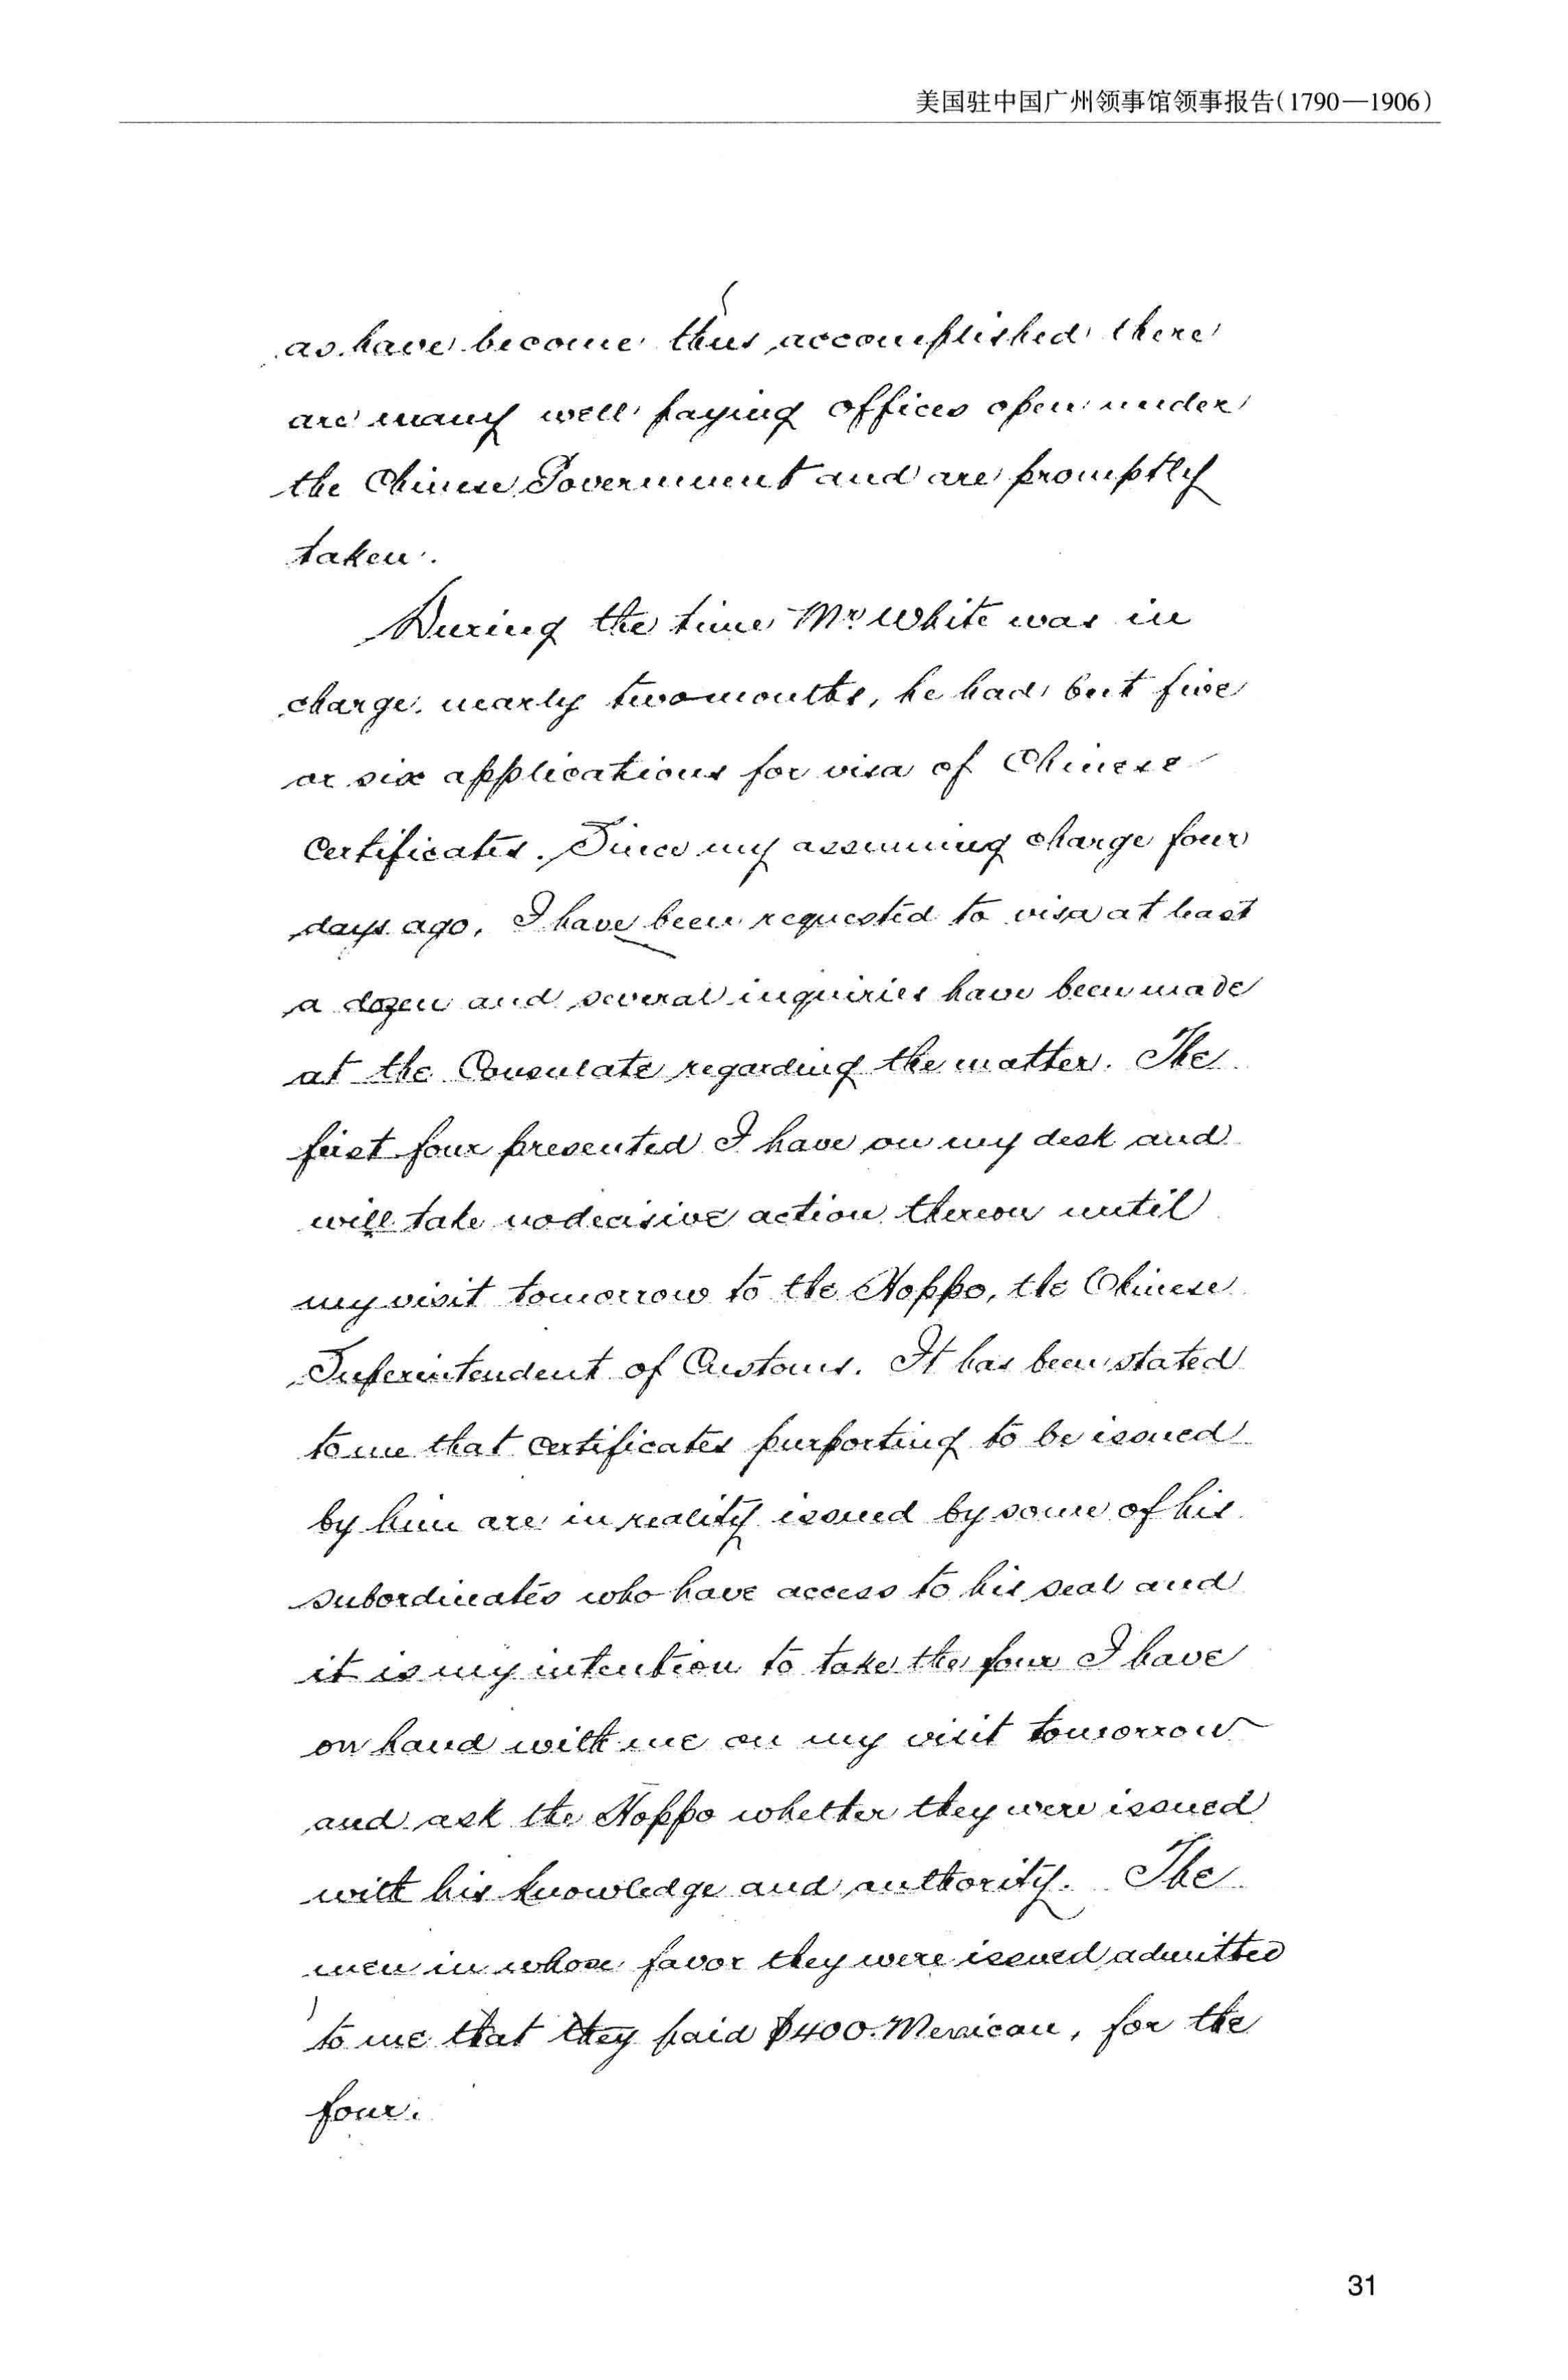 美国驻中国广州领事馆领事报告(1790—1906)
as have become thus accomplished there
are many well paying offices open under
the Chinese Government and are promptly
taken.
During the time Mr. White was in
charge, nearly two months, he had but five
or six applications for visa of Chinese
Certificates. Since my assuming charge four
days ago, I have been requested to visa at least
a dozen and several inquiries have been made
at the Consulate regarding the matter. The
first four presented I have on my desk and
will take no decisive action thereon until
my visit tomorrow to the Hoppo, the Chinese
Superintendent of Customs. It has been stated
to me that certificates purporting to be issued
by him are in reality issued by some of his
subordinates who have access to his seal and
it is my intention to take the four I have
on hand with me on my visit tomorrow
and ask the Hoppo whether they were issued
with his knowledge and authority. The
men in whose favor they were issued admitted
to me that they paid $400. Mexican, for the
four.
31